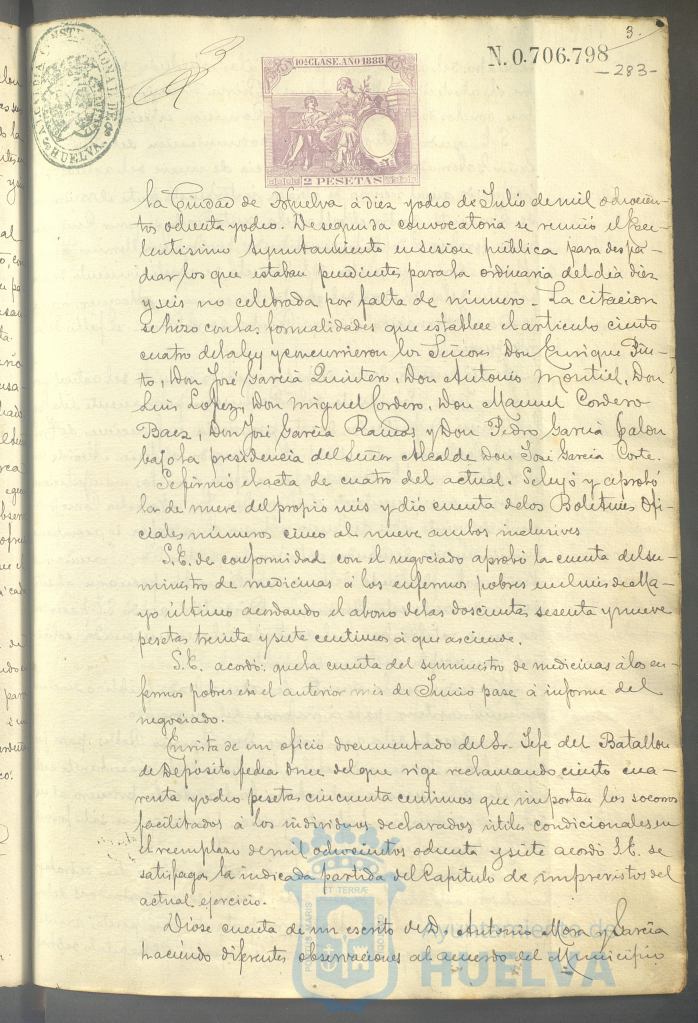 3.
N. 0.706.798
-283-
ALCALDIA CONSTITUCIONAL DE
HUELVA
10ª CLASE. AÑO 1888
2 PESETAS
la Ciudad de Huelva á diez y ocho de Julio de mil ochocien-
tos ochenta y ocho. De segunda convocatoria se reunió el Exce-
lentisimo Ayuntamiento en sesion pública para despa-
char los que estaban pendientes para la ordinaria del dia diez
y seis no celebrada por falta de número. La citacion
se hizo con las formalidades que establece el articulo ciento
cuatro de la ley y concurrieron los Señores Don Enrique Pin-
to, Don José Garcia Quintero, Don Antonio Montiel, Don
Luis Lopez, Don Miguel Cordero, Don Manuel Cordero
Baez, Don José Garcia Ramos y Don Pedro Garcia Calon
bajo la presidencia del Señor Alcalde Don José Garcia Corte.
Se firmó el acta de cuatro del actual. Se leyó y aprobó
la de nueve del propio mes y dió cuenta de los Boletines Ofi-
ciales números cinco al nueve ambos inclusives
S.E. de conformidad con el negociado aprobó la cuenta del su-
ministro de medicinas á los enfermos pobres en el mes de Ma-
yo último acordando el abono de las doscientas sesenta y nueve
pesetas treinta y siete centimos á que asciende.
S.E. acordó: que la cuenta del suministro de medicinas á los en-
fermos pobres en el anterior mes de Junio pase á informe del
negociado.
En vista de un oficio documentado del Sr. Jefe del Batallon
de Depósito fecha once del que rige reclamando ciento cua-
renta y ocho pesetas cincuenta centimos que importan los socorros
facilitados á los individuos declarados útiles condicionales en
el reemplazo de mil ochocientos ochenta y siete acordó S.E. se
satisfaga la indicada partida del Capitulo de imprevistos del
actual ejercicio.
Dióse cuenta de un escrito de D. Antonio Mora y Garcia
haciendo diferentes observaciones al acuerdo del Municipio
Ayuntamiento de
HUELVA